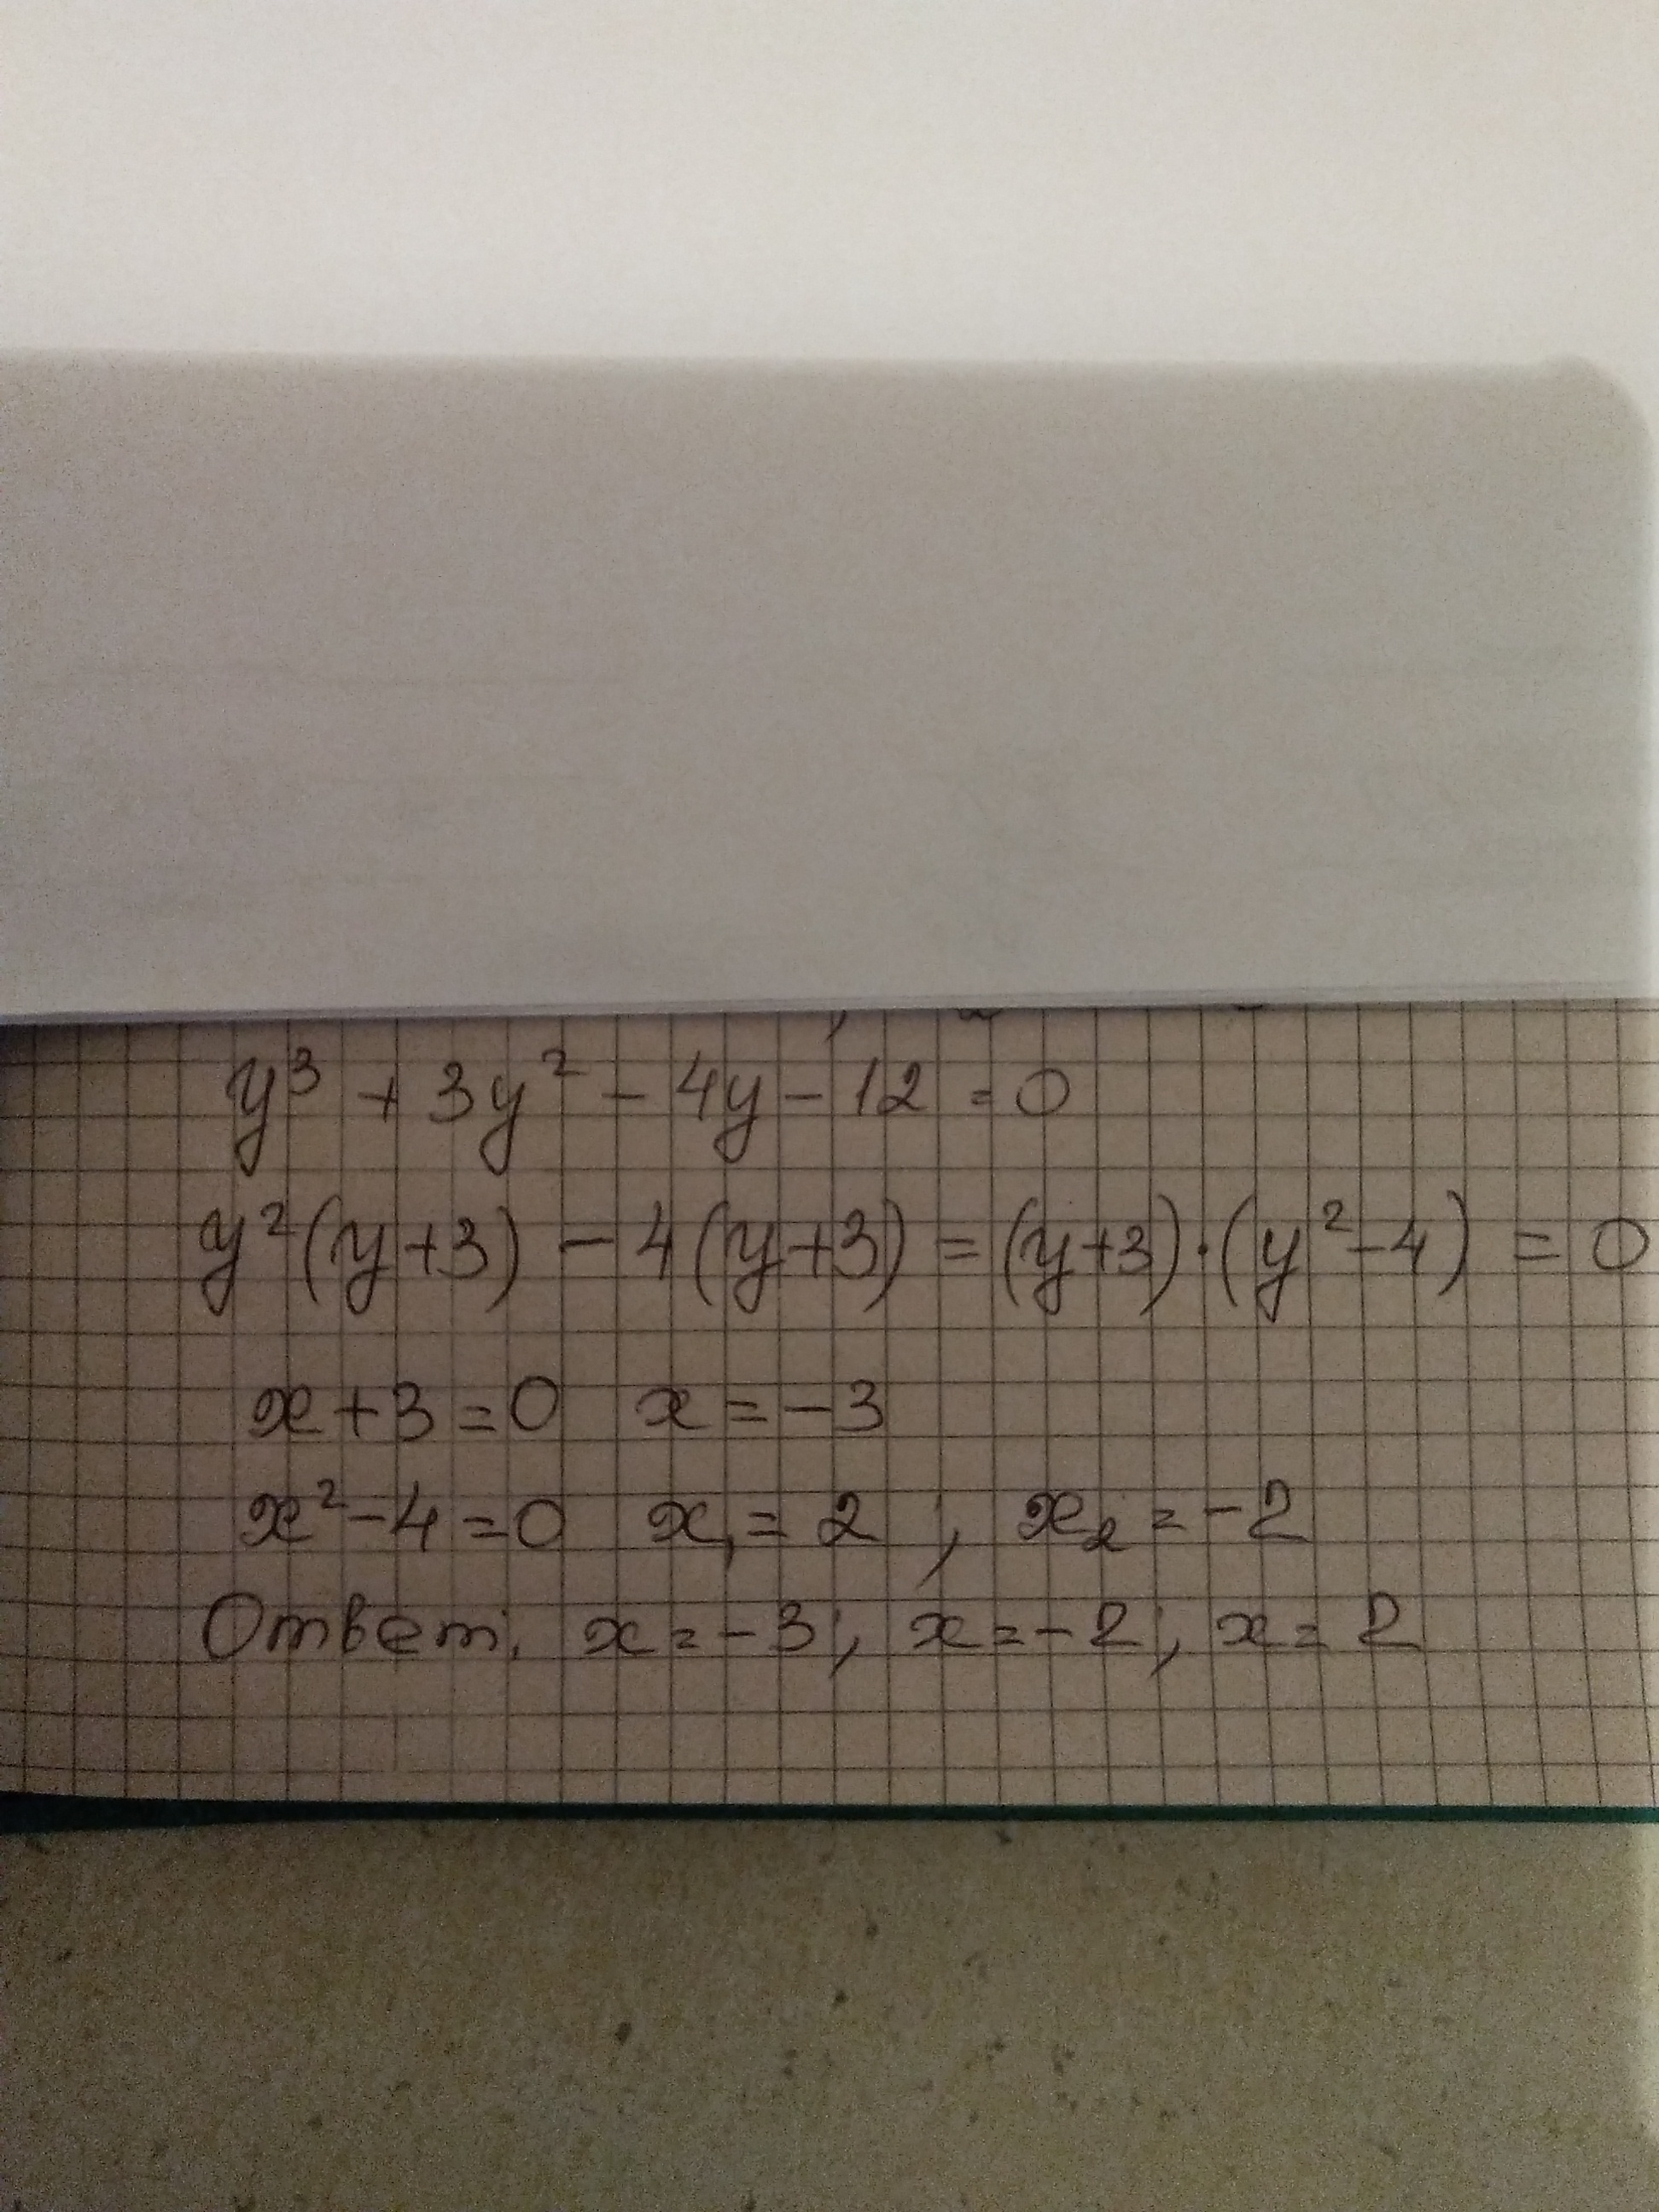 y³ + 3y² - 4y - 12 = 0
y²(y+3) - 4(y+3) = (y+3)·(y²-4) = 0
x+3=0 x=-3
x²-4=0 x₁=2 ; x₂=-2
Ответ: x=-3; x=-2; x=2